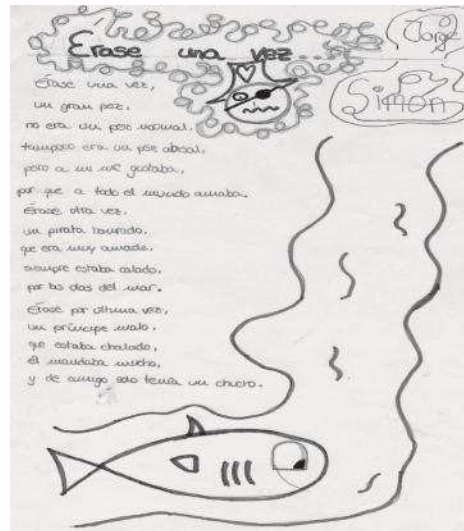 Érase una vez...
Jorge
Simón
Érase una vez,
un gran pez,
no era un pez normal,
tampoco era un pez abisal,
pero a mi me gustaba,
por que a todo el mundo amaba.
Érase otra vez,
un pirata honrado,
que era muy amado,
siempre estaba calado,
por las olas del mar.
Érase por última vez,
un príncipe malo,
que estaba chalado,
él mandaba mucho,
y de amigo solo tenía un chucho.